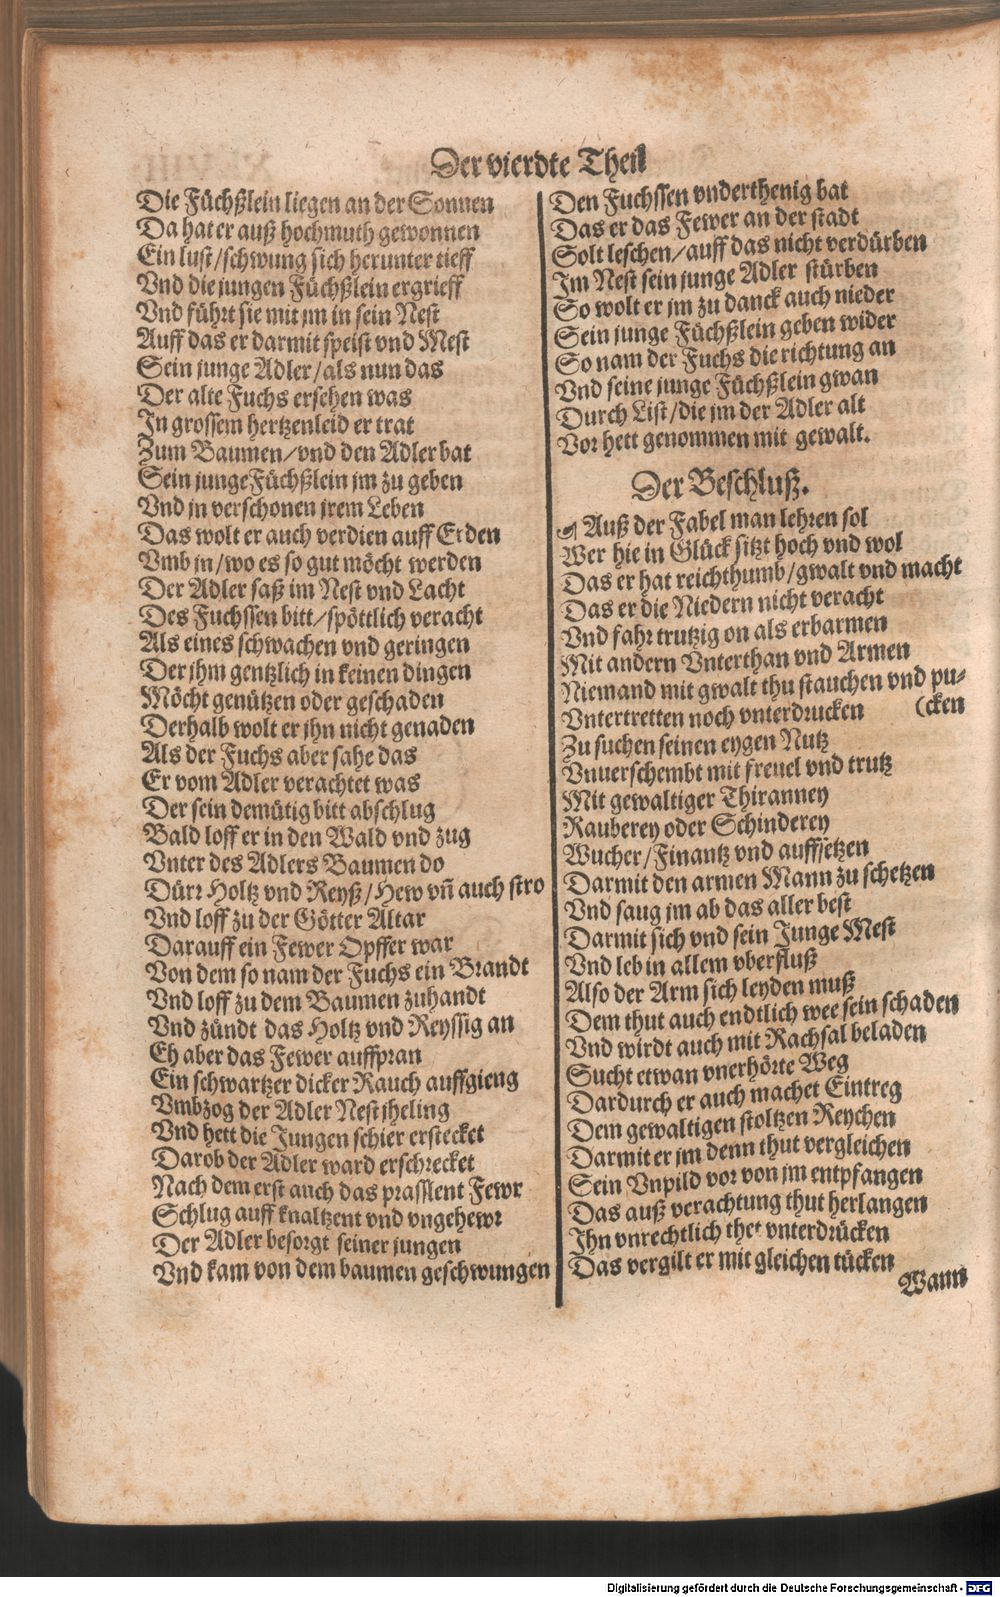 Der vierdte Theil
Die Füchßlein liegen an der Sonnen
Da hat er auß hochmuth gewonnen
Ein lust/schwung sich herunter tieff
Vnd die jungen Füchßlein ergrieff
Vnd führt sie mit jm in sein Nest
Auff das er darmit speist vnd Mest
Sein junge Adler/als nun das
Der alte Fuchs ersehen was
In grossem hertzenleid er trat
Zum Baumen/vnd den Adler bat
Sein junge Füchßlein jm zu geben
Vnd jn verschonen jrem Leben
Das wolt er auch verdien auff Erden
Vmb jn/wo es so gut möcht werden
Der Adler saß im Nest vnd Lacht
Des Fuchssen bitt/spöttlich veracht
Als eines schwachen vnd geringen
Der jhm gentzlich in keinen dingen
Möcht genützen oder geschaden
Derhalb wolt er jhn nicht genaden
Als der Fuchs aber sahe das
Er vom Adler verachtet was
Der sein demütig bitt abschlug
Bald loff er in den Wald vnd zug
Vnter des Adlers Baumen do
Dürr Holtz vnd Reyß/Hew vñ auch stro
Vnd loff zu der Götter Altar
Darauff ein Fewer Opffer war
Von dem so nam der Fuchs ein Brandt
Vnd loff zu dem Baumen zuhandt
Vnd zündt das Holtz vnd Reyssig an
Eh aber das Fewer auffpran
Ein schwartzer dicker Rauch auffgieng
Vmbzog der Adler Nest jheling
Vnd hett die Jungen schier erstecket
Darob der Adler ward erschrecket
Nach dem erst auch das prasslent Fewr
Schlug auff knaltzent vnd vngehewr
Der Adler besorgt seiner jungen
Vnd kam von dem baumen geschwungen
Den Fuchssen vnderthenig bat
Das er das Fewer an der stadt
Solt leschen/auff das nicht verdürben
Im Nest sein junge Adler stürben
So wolt er jm zu danck auch nieder
Sein junge Füchßlein geben wider
So nam der Fuchs die richtung an
Vnd seine junge Füchßlein gwan
Durch List/die jm der Adler alt
Vor hett genommen mit gewalt.
Der Beschluß.
Auß der Fabel man lehren sol
Wer hie in Glück sitzt hoch vnd wol
Das er hat reichthumb/gwalt vnd macht
Das er die Niedern nicht veracht
Vnd fahr trutzig on als erbarmen
Mit andern Vnterthan vnd Armen
Niemand mit gwalt thu stauchen vnd pu-
Vntertretten noch vnterdrucken (cken
Zu suchen seinen eygen Nutz
Vnuerschembt mit freuel vnd trutz
Mit gewaltiger Thiranney
Rauberey oder Schinderey
Wucher/Finantz vnd auffsetzen
Darmit den armen Mann zu schetzen
Vnd saug jm ab das aller best
Darmit sich vnd sein Junge Mest
Vnd leb in allem vberfluß
Also der Arm sich leyden muß
Dem thut auch endtlich wee sein schaden
Vnd wirdt auch mit Rachsal beladen
Sucht etwan vnerhörte Weg
Dardurch er auch machet Eintreg
Dem gewaltigen stoltzen Reychen
Darmit er jm denn thut vergleichen
Sein Vnpild vor von jm entpfangen
Das auß verachtung thut herlangen
Ihn vnrechtlich thet vnterdrücken
Das vergilt er mit gleichen tücken
Wann
Digitalisierung gefördert durch die Deutsche Forschungsgemeinschaft - DFG